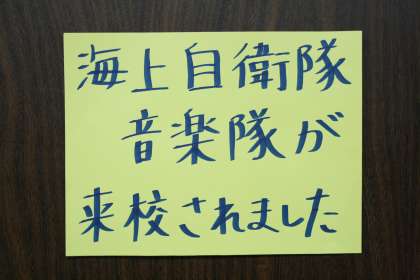 海上自衛隊
音楽隊が
来校されました